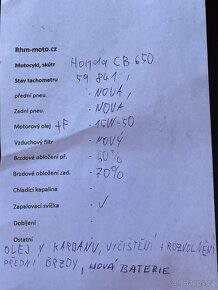 Rhm-moto.cz
Motocykl, skútr Honda CB 650
Stav tachometru 59841,
přední pneu. - NOVÁ,
Zadní pneu. - NOVÁ
Motorový olej +F - 15W-50
Vzduchový filtr - NOVÝ
Brzdové obložení př. - 60%
Brzdové obložení zad. - 70%
Chladící kapalina -
Zapalovací svíčka - V
Dobíjení -
Ostatní
OLEJ V KARDANU, VYČIŠTĚNÍ + ROZVOLNĚNÍ
PŘEDNÍ BRZDY, NOVÁ BATERIE